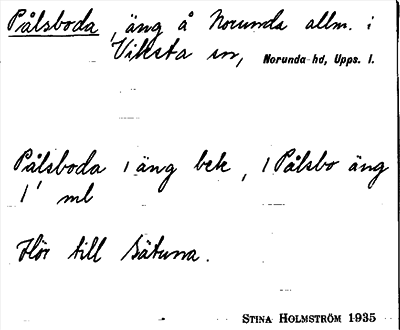 Pålsboda, äng å Norunda allm. i
Viksta sn, Norunda hd, Upps. l.
Pålsboda 1 äng bek, 1 Pålsbo äng
1 ml
Hör till Sätuna.
STINA HOLMSTRÖM 1935